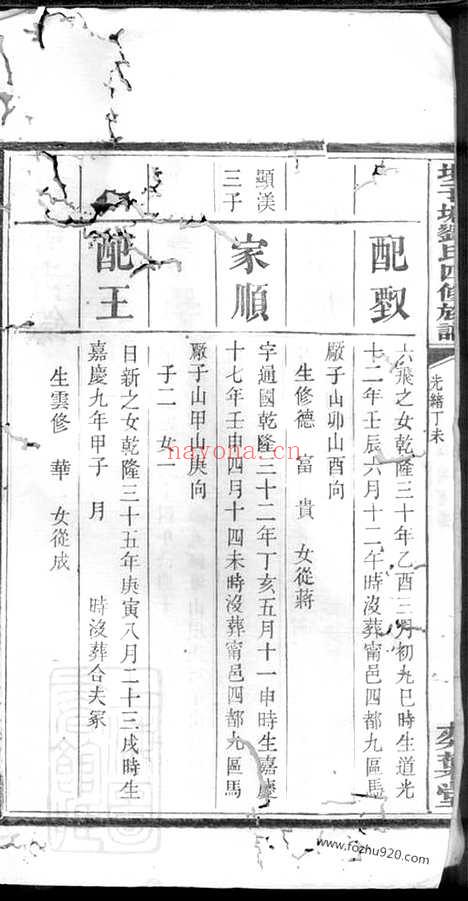 劉氏四修族譜
光緒丁未
堂
配
六飛之女乾隆三十年乙酉三月初九巳時生道光
十二年壬辰六月十二午時沒葬甯邑四都九區馬
厰子山卯山酉向
生修德 富 貴 女從蔣
顯渼
三子
家順
字通國乾隆三十二年丁亥五月十一申時生嘉慶
十七年壬申四月十四未時沒葬甯邑四都九區馬
厰子山甲山庚向
子二 女一
配王
日新之女乾隆三十五年庚寅八月二十三戌時生
嘉慶九年甲子 月 時沒葬合夫冢
生雲修 華 女從成
nayona.cn
www.fozhu920.com